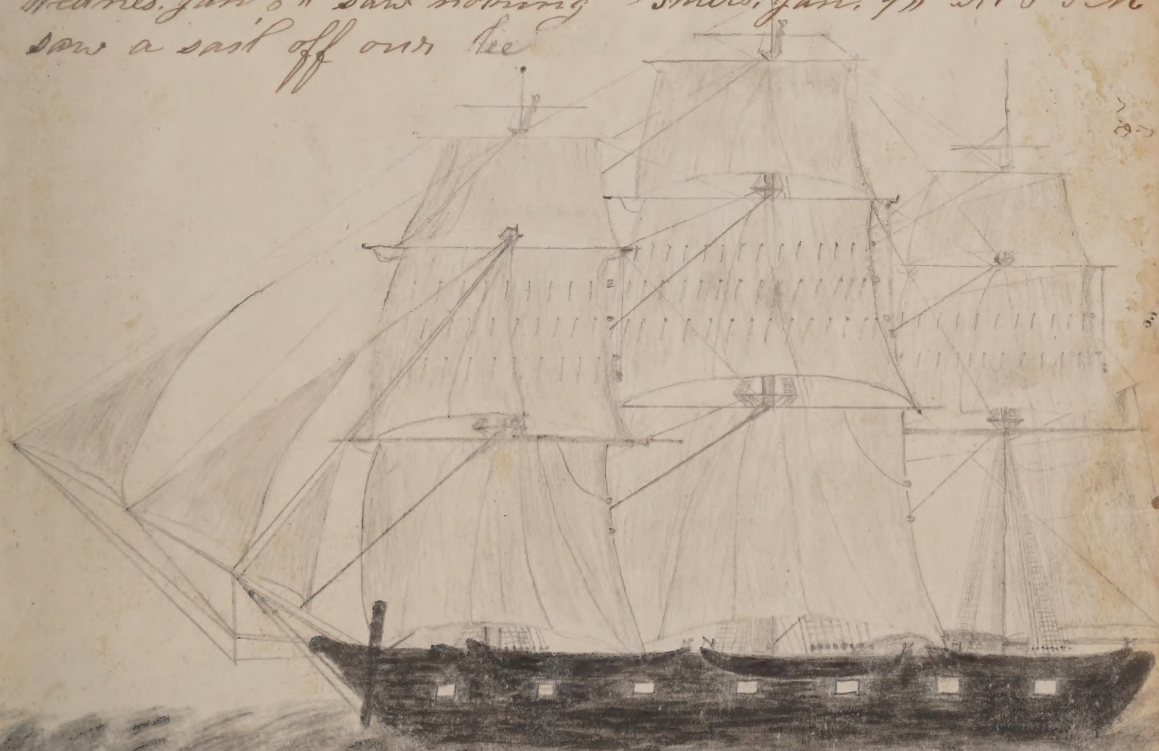 Wednes. Jan 8th saw nothing Thurs. Jan. 9th At 8 P.M
saw a sail off our lee